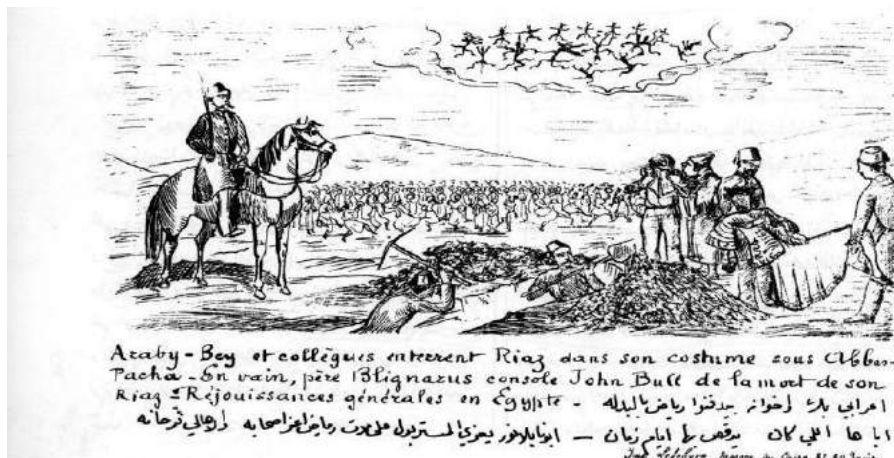 Araby-Bey et collègues enterrent Riaz dans son costume sous Abbas-
Pacha - En vain, père Blignarus console John Bull de la mort de son
Riaz = Réjouissances générales en Egypte -
اعرابي بك و اخوانه بيدفنوا رياض بالبدله
اللي كان يرقص بها ايام زمان — ابونا بلانوز يعزي المستر بول على موت رياض اعز اصحابه والاهالي فرحانه
Imp. Lefebvre